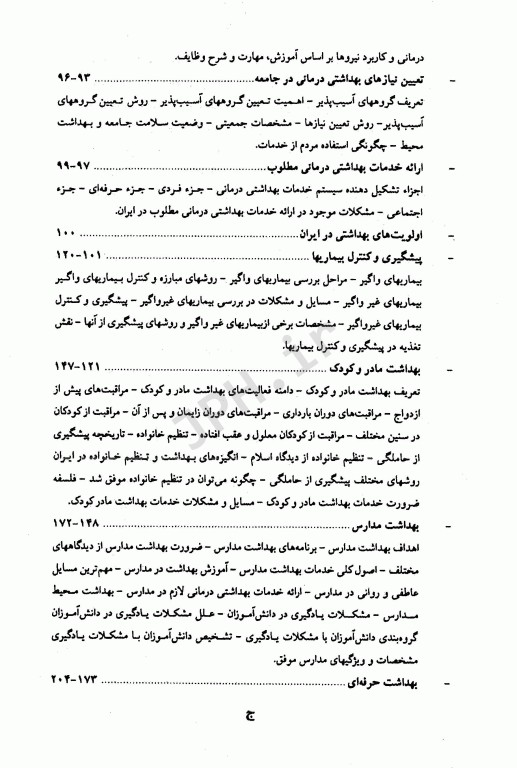 درمانی و کاربرد نیروها بر اساس آموزش، مهارت و شرح وظایف.
- تعیین نیازهای بهداشتی درمانی در جامعه ........ ۹۳-۹۶
تعریف گروههای آسیب‌پذیر - اهمیت تعیین گروههای آسیب‌پذیر - روش تعیین گروههای
آسیب‌پذیر- روش تعیین نیازها - مشخصات جمعیتی - وضعیت سلامت جامعه و بهداشت
محیط - چگونگی استفاده مردم از خدمات.
- ارائه خدمات بهداشتی درمانی مطلوب ........ ۹۷-۹۹
اجزاء تشکیل دهنده سیستم خدمات بهداشتی درمانی - جزء فردی - جزء حرفه‌ای - جزء
اجتماعی - مشکلات موجود در ارائه خدمات بهداشتی درمانی مطلوب در ایران.
- اولویت‌های بهداشتی در ایران ........ ۱۰۰
- پیشگیری و کنترل بیماریها ........ ۱۰۱-۱۲۰
بیماریهای واگیر - مراحل بررسی بیماریهای واگیر - روشهای مبارزه و کنترل بیماریهای واگیر
بیماریهای غیر واگیر - مسایل و مشکلات در بررسی بیماریهای غیرواگیر - پیشگیری و کنترل
بیماریهای غیرواگیر - مشخصات برخی ازبیماریهای غیر واگیر و روشهای پیشگیری از آنها - نقش
تغذیه در پیشگیری و کنترل بیماریها.
- بهداشت مادر و کودک ........ ۱۲۱-۱۴۷
تعریف بهداشت مادر و کودک - دامنه فعالیت‌های بهداشت مادر و کودک - مراقبت‌های پیش از
ازدواج - مراقبت‌های دوران بارداری - مراقبت‌های دوران زایمان و پس از آن - مراقبت از کودکان
در سنین مختلف - مراقبت از کودکان معلول و عقب افتاده - تنظیم خانواده - تاریخچه پیشگیری
از حاملگی - تنظیم خانواده از دیدگاه اسلام - انگیزه‌های بهداشت و تنظیم خانواده در ایران
روشهای مختلف پیشگیری از حاملگی - چگونه می‌توان در تنظیم خانواده موفق شد - فلسفه
ضرورت خدمات بهداشت مادر و کودک - مسایل و مشکلات خدمات بهداشت مادر کودک.
- بهداشت مدارس ........ ۱۴۸-۱۷۲
اهداف بهداشت مدارس - برنامه‌های بهداشت مدارس - ضرورت بهداشت مدارس از دیدگاههای
مختلف - اصول کلی خدمات بهداشت مدارس - آموزش بهداشت در مدارس - مهم‌ترین مسایل
عاطفی و روانی در مدارس - ارائه خدمات بهداشتی درمانی لازم در مدارس - بهداشت محیط
مدارس - مشکلات یادگیری در دانش‌آموزان - علل مشکلات یادگیری در دانش‌آموزان
گروه‌بندی دانش‌آموزان با مشکلات یادگیری - تشخیص دانش‌آموزان با مشکلات یادگیری
مشخصات و ویژگیهای مدارس موفق.
- بهداشت حرفه‌ای ........ ۱۷۳-۲۰۴
ج
JPH.ir